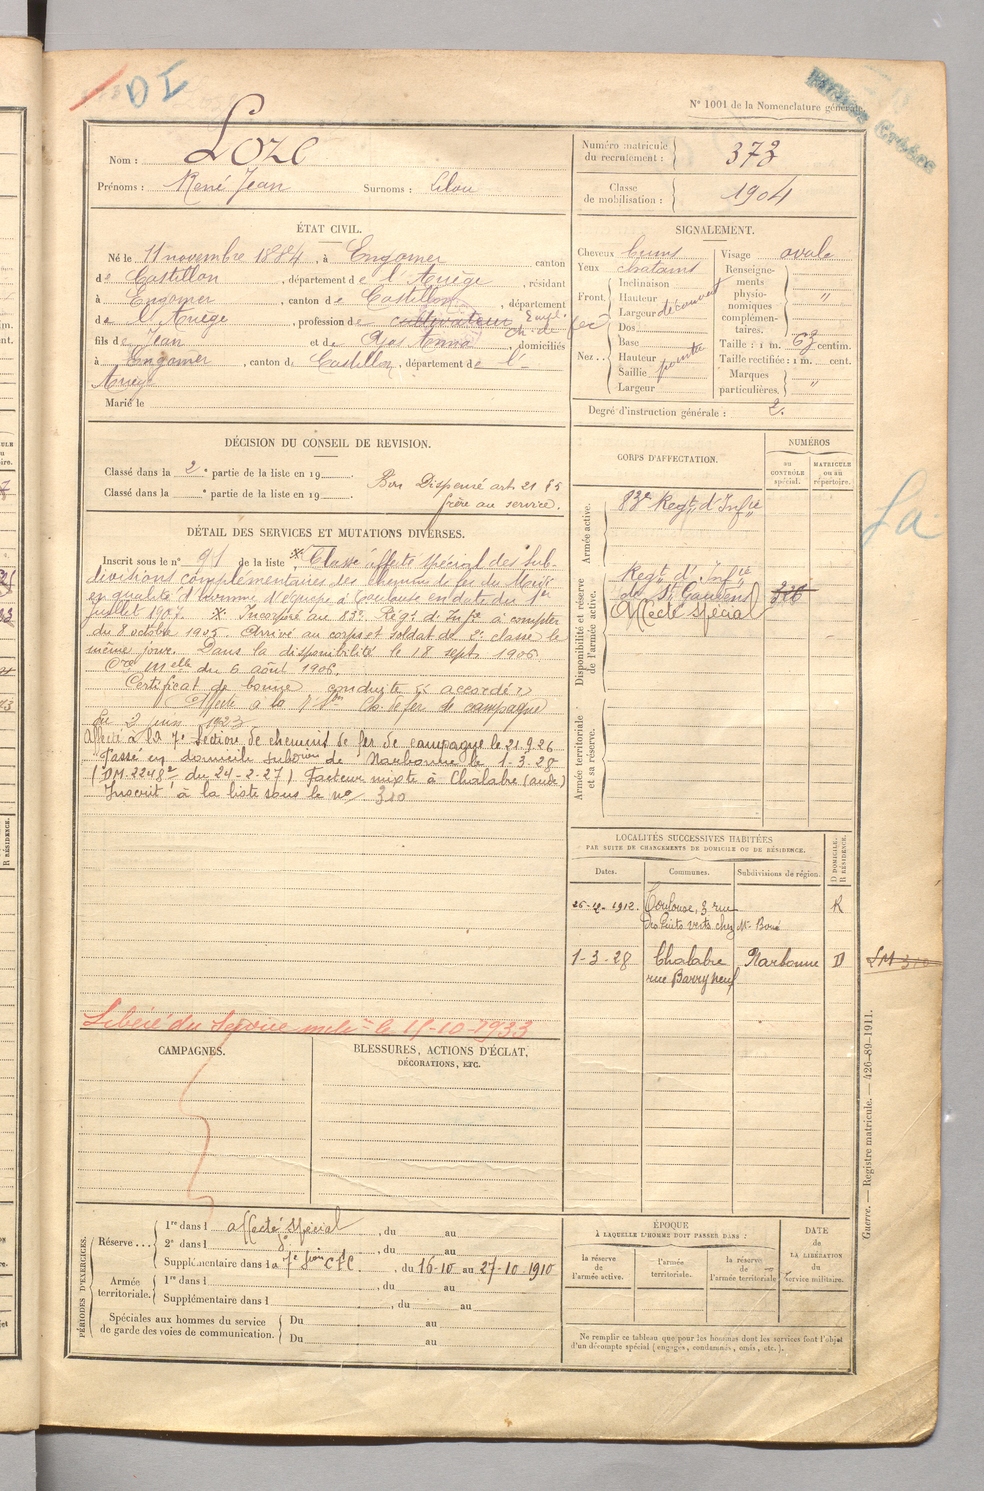 DI
N° 1001 de la Nomenclature générale
Nom : Loze
Prénoms : René Jean Surnoms : Lilou
Numéro matricule du recrutement : 373
Classe de mobilisation : 1904
ÉTAT CIVIL.
Né le 11 novembre 1884, à Engomer canton
de Castillon, département de l'Ariège, résidant
à Engomer, canton de Castillon, département
de l'Ariège, profession de cultivateur Empl.
ch. de fer
fils de Jean et de Ajas Anna domiciliés
à Engomer, canton de Castillon, département de l'-
Ariège
Marié le
SIGNALEMENT.
Cheveux bruns
Yeux chatains
Front. Inclinaison
Hauteur
Largeur découvert
Nez... Dos
Base
Hauteur
Saillie pointu
Largeur
Visage ovale
Renseignements physionomiques complémentaires. "
Taille : 1 m. 63 centim.
Taille rectifiée : 1 m. cent.
Marques particulières. "
Degré d'instruction générale : 2.
DÉCISION DU CONSEIL DE REVISION.
Classé dans la 2e partie de la liste en 19
Classé dans la e partie de la liste en 19
Bon Dispensé art. 21 §5
frère au service.
DÉTAIL DES SERVICES ET MUTATIONS DIVERSES.
Inscrit sous le n° 91 de la liste Classé affecté spécial des Sub-
divisions complémentaires des chemins de fer du Midi
en qualité d'homme d'équipe à Toulouse en date du 1er
juillet 1907. Incorporé au 83e Régt d'Infie à compter
du 8 octobre 1905. Arrivé au corps et soldat de 2e classe le
même jour. Dans la disponibilité le 18 septe 1906.
Cre Mlle du 6 août 1906.
Certificat de bonne conduite accordé
Affecté à la 7e Son Ch. de fer de campagne
le 2 juin 1923
Affecté à la 7e Section de chemins de fer de campagne le 21.9.26
Passé en domicile subdon de Narbonne le 1-3-28
(DM. 2248 du 24-2-27) Facteur mixte à Chalabre (aude)
Inscrit à la liste sous le no 310
Libéré du Service milre le 15-10-1933
CORPS D'AFFECTATION.
NUMÉROS
au CONTRÔLE spécial.
MATRICULE ou au répertoire.
Armée active.
83e Regt d'Infie
Disponibilité et réserve de l'armée active.
Regt d'Infie
de St Gaudens
Affecté spécial
Armée territoriale et sa réserve.
LOCALITÉS SUCCESSIVES HABITÉES
PAR SUITE DE CHANGEMENTS DE DOMICILE OU DE RÉSIDENCE.
Dates. Communes. Subdivisions de région. D DOMICILE. R RÉSIDENCE.
Toulouse, 3 rue R
des Puits verts chez Mr
1-3-28 Chalabre Narbonne D
rue Barry neuf
CAMPAGNES.
BLESSURES, ACTIONS D'ÉCLAT,
DÉCORATIONS, ETC.
PÉRIODES D'EXERCICES.
Réserve... 1re dans l affecté spécial, du au
2e dans l, du au
Supplémentaire dans la 7e Son C.F.C., du 16-10 au 27-10-1910
Armée territoriale. 1re dans l, du au
Supplémentaire dans l, du au
Spéciales aux hommes du service de garde des voies de communication. Du au
Du au
ÉPOQUE
À LAQUELLE L'HOMME DOIT PASSER DANS :
la réserve de l'armée active.
l'armée territoriale.
la réserve de l'armée territoriale
DATE de LA LIBÉRATION du service militaire.
Ne remplir ce tableau que pour les hommes dont les services font l'objet
d'un décompte spécial (engagés, condamnés, omis, etc.).
Guerre. — Registre matricule. — 426-89-1911.